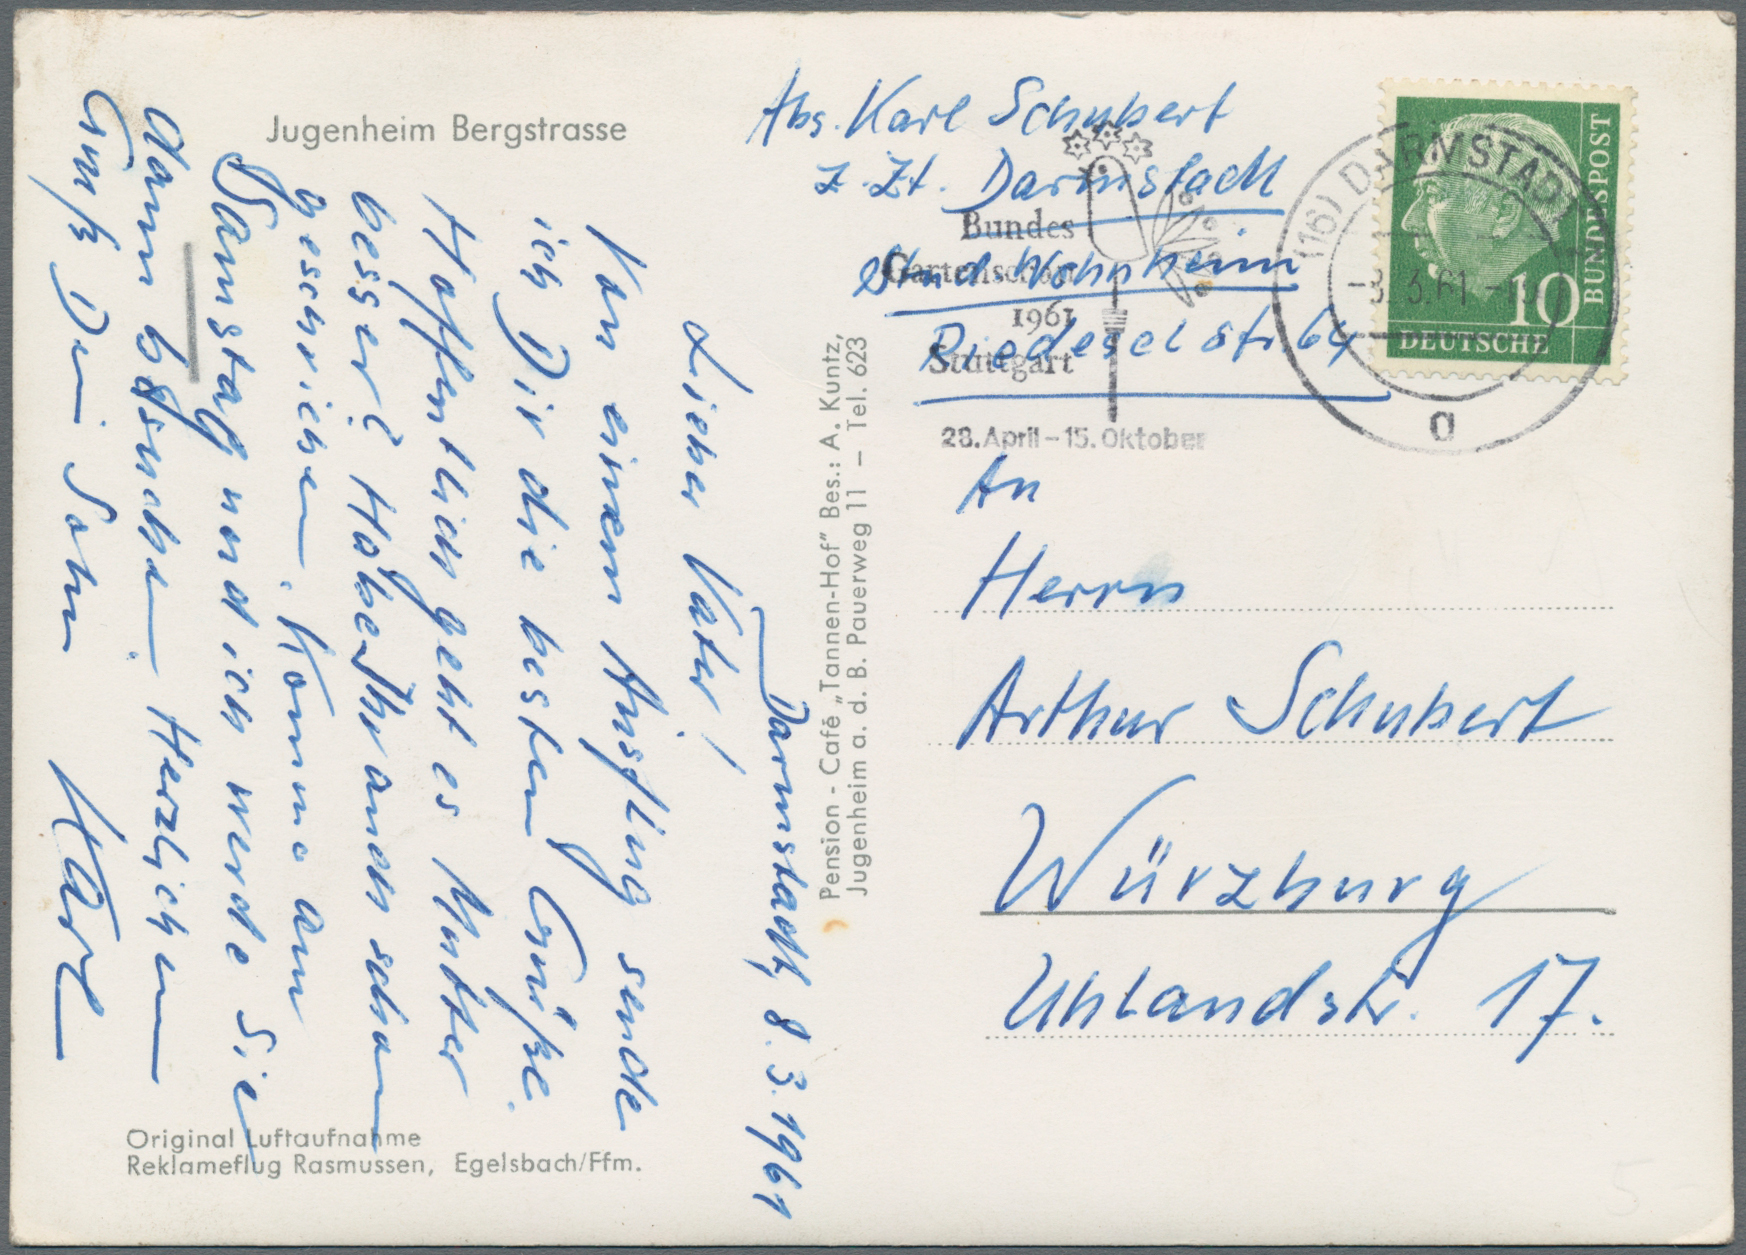 Jugenheim Bergstrasse
Darmstadt, 8.3.1961
Lieber Vater!
Von einem Ausflug sende
ich Dir die besten Grüße.
Hoffentlich geht es Mutter
besser? Habe Ihr auch schon
geschrieben. Komme am
Samstag und ich werde Sie
dann besuchen. Herzlichen
Gruß Dein Sohn Karl
Original Luftaufnahme
Reklameflug Rasmussen, Egelsbach/Ffm.
Pension - Café „Tannen-Hof" Bes.: A. Kuntz,
Jugenheim a. d. B. Pauerweg 11 – Tel. 623
Abs. Karl Schubert
z. Zt. Darmstadt
Stud. Wohnheim
Riedeselstr. 64
Bundes
Gartenschau
1961
Stuttgart
28. April – 15. Oktober
(16) DARMSTADT
-8.3.61
a
10
DEUTSCHE
BUNDESPOST
An
Herrn
Arthur Schubert
Würzburg
Uhlandstr. 17.